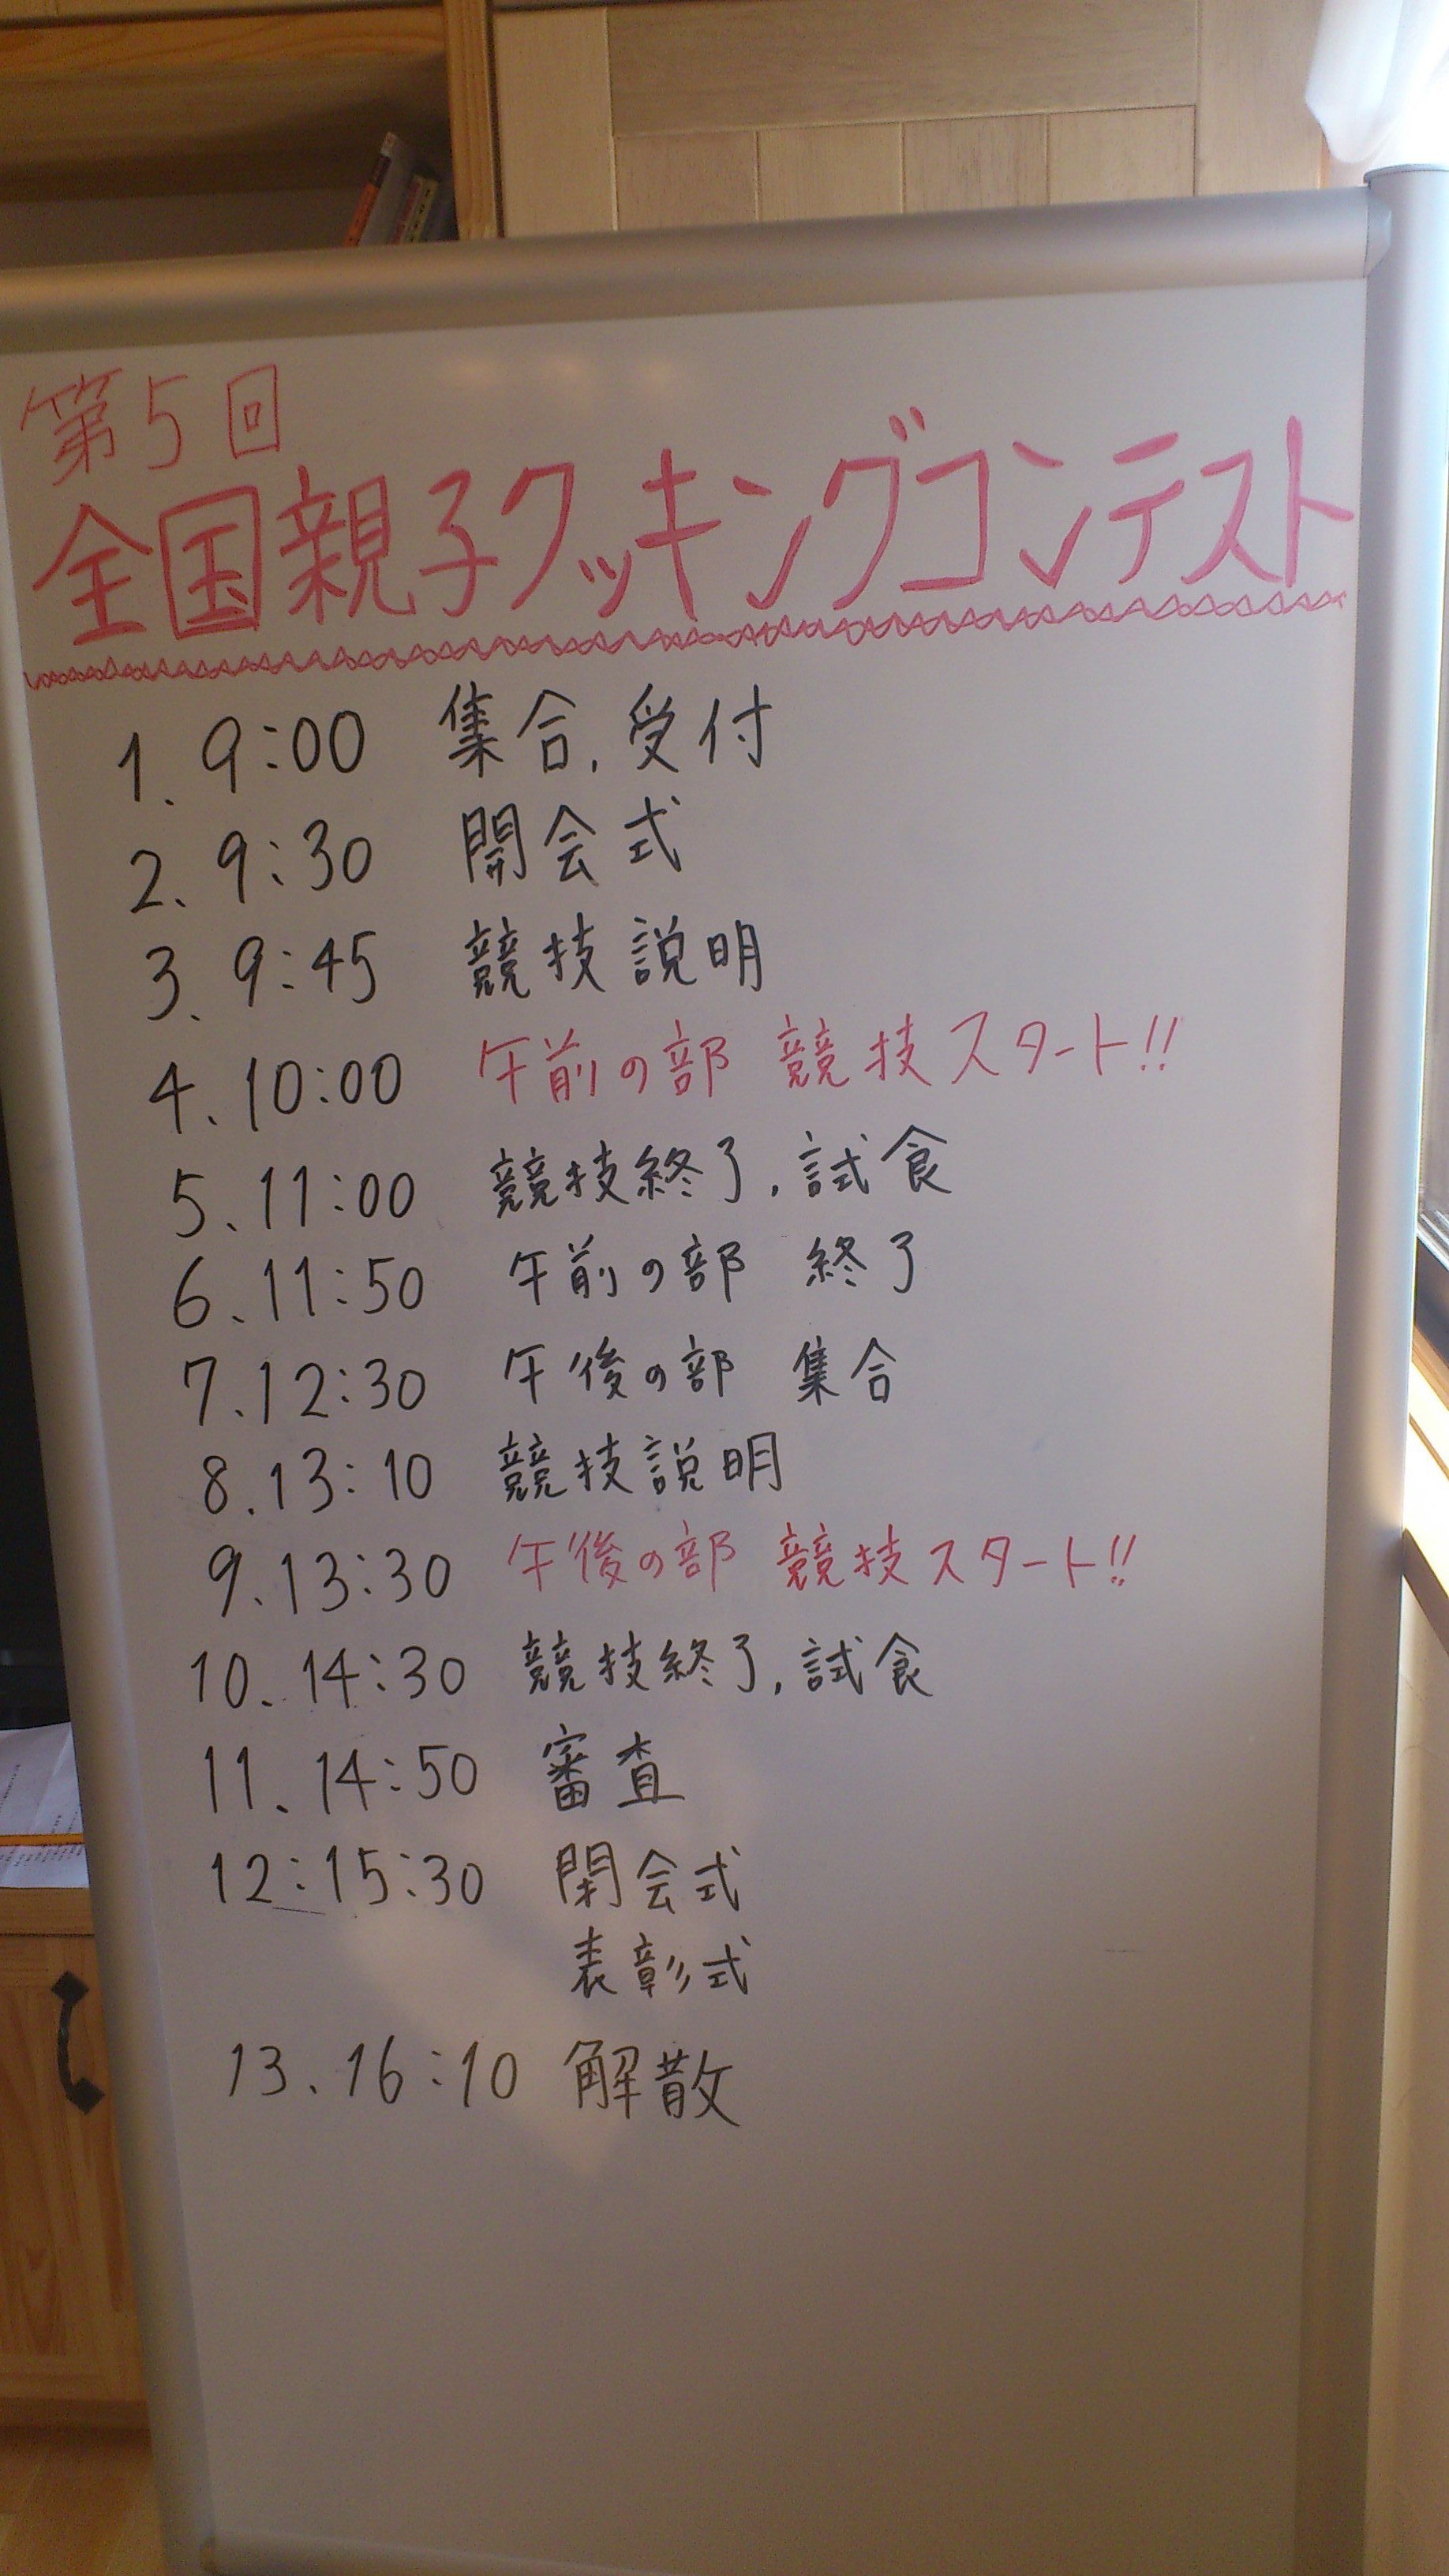 第5回
全国親子クッキングコンテスト
1. 9:00 集合, 受付
2. 9:30 開会式
3. 9:45 競技説明
4. 10:00 午前の部 競技スタート!!
5. 11:00 競技終了, 試食
6. 11:50 午前の部 終了
7. 12:30 午後の部 集合
8. 13:10 競技説明
9. 13:30 午後の部 競技スタート!!
10. 14:30 競技終了, 試食
11. 14:50 審査
12:15:30 閉会式
表彰式
13. 16:10 解散